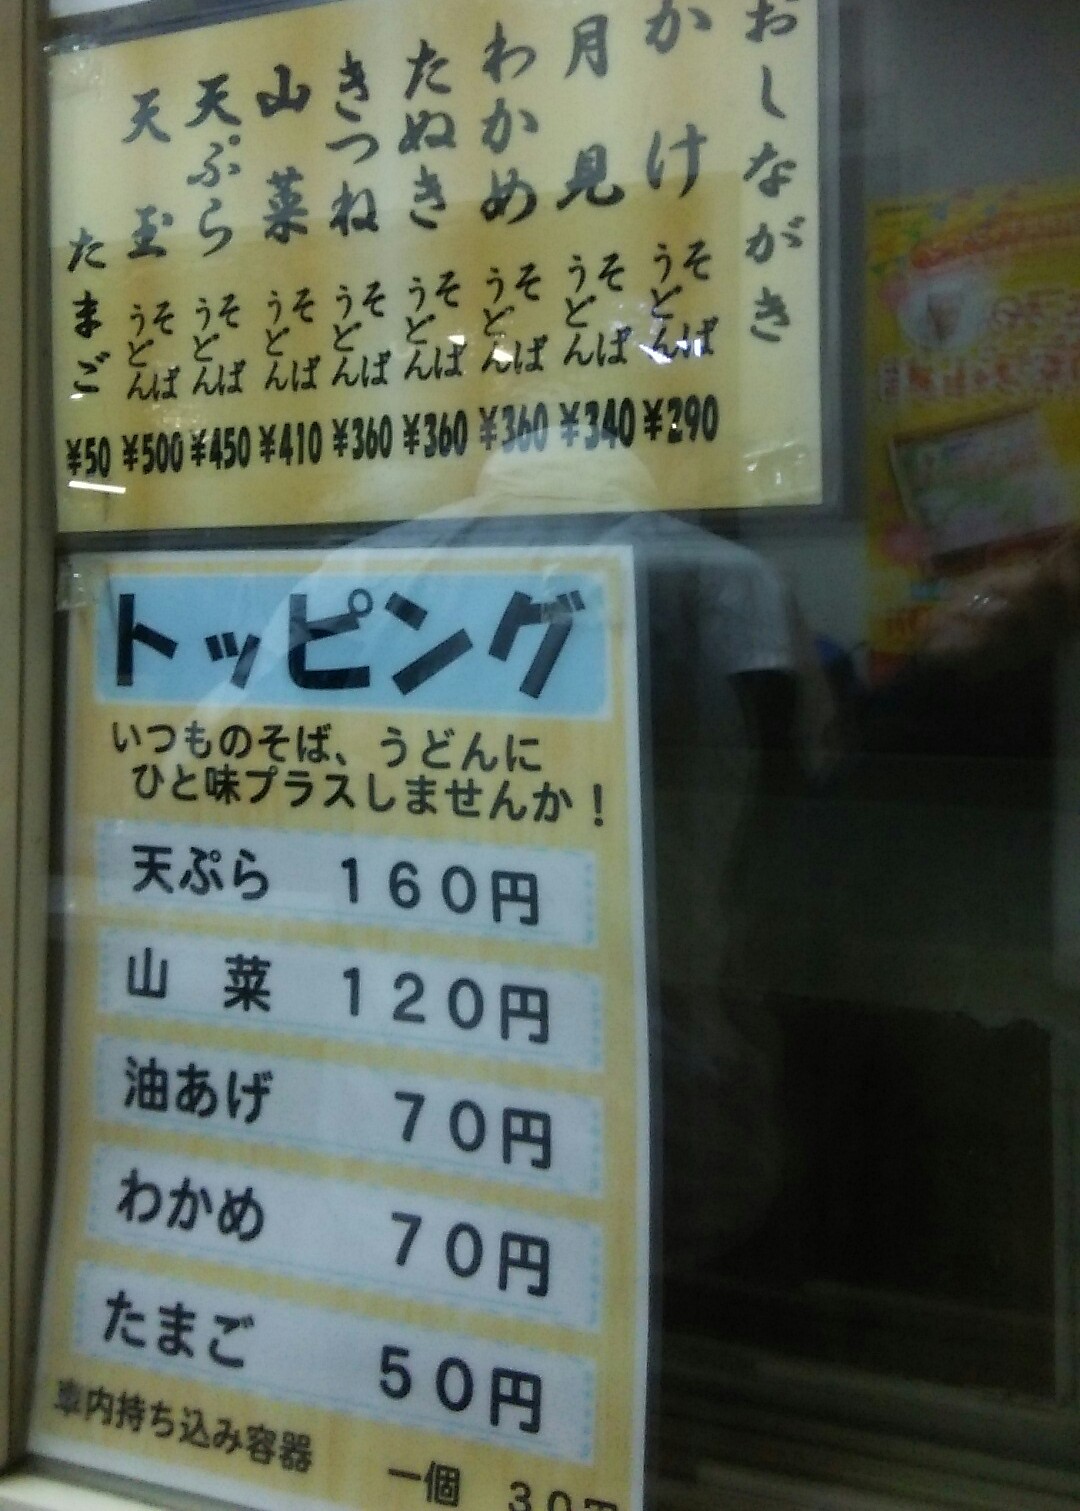 おしながき
かけ そば うどん ¥290
月見 そば うどん ¥340
わかめ そば うどん ¥360
たぬき そば うどん ¥360
きつね そば うどん ¥360
山菜 そば うどん ¥410
天ぷら そば うどん ¥450
天玉 そば うどん ¥500
たまご ¥50
トッピング
いつものそば、うどんに
ひと味プラスしませんか！
天ぷら 160円
山菜 120円
油あげ 70円
わかめ 70円
たまご 50円
車内持ち込み容器 一個 30円